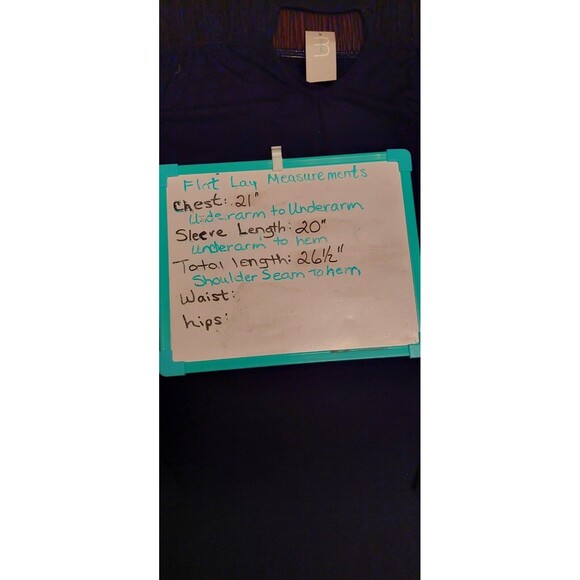 B
Flat Lay Measurements
Chest: 21"
Underarm to Underarm
Sleeve Length: 20"
underarm to hem
Total length: 26½"
Shoulder Seam To hem
Waist:
hips: